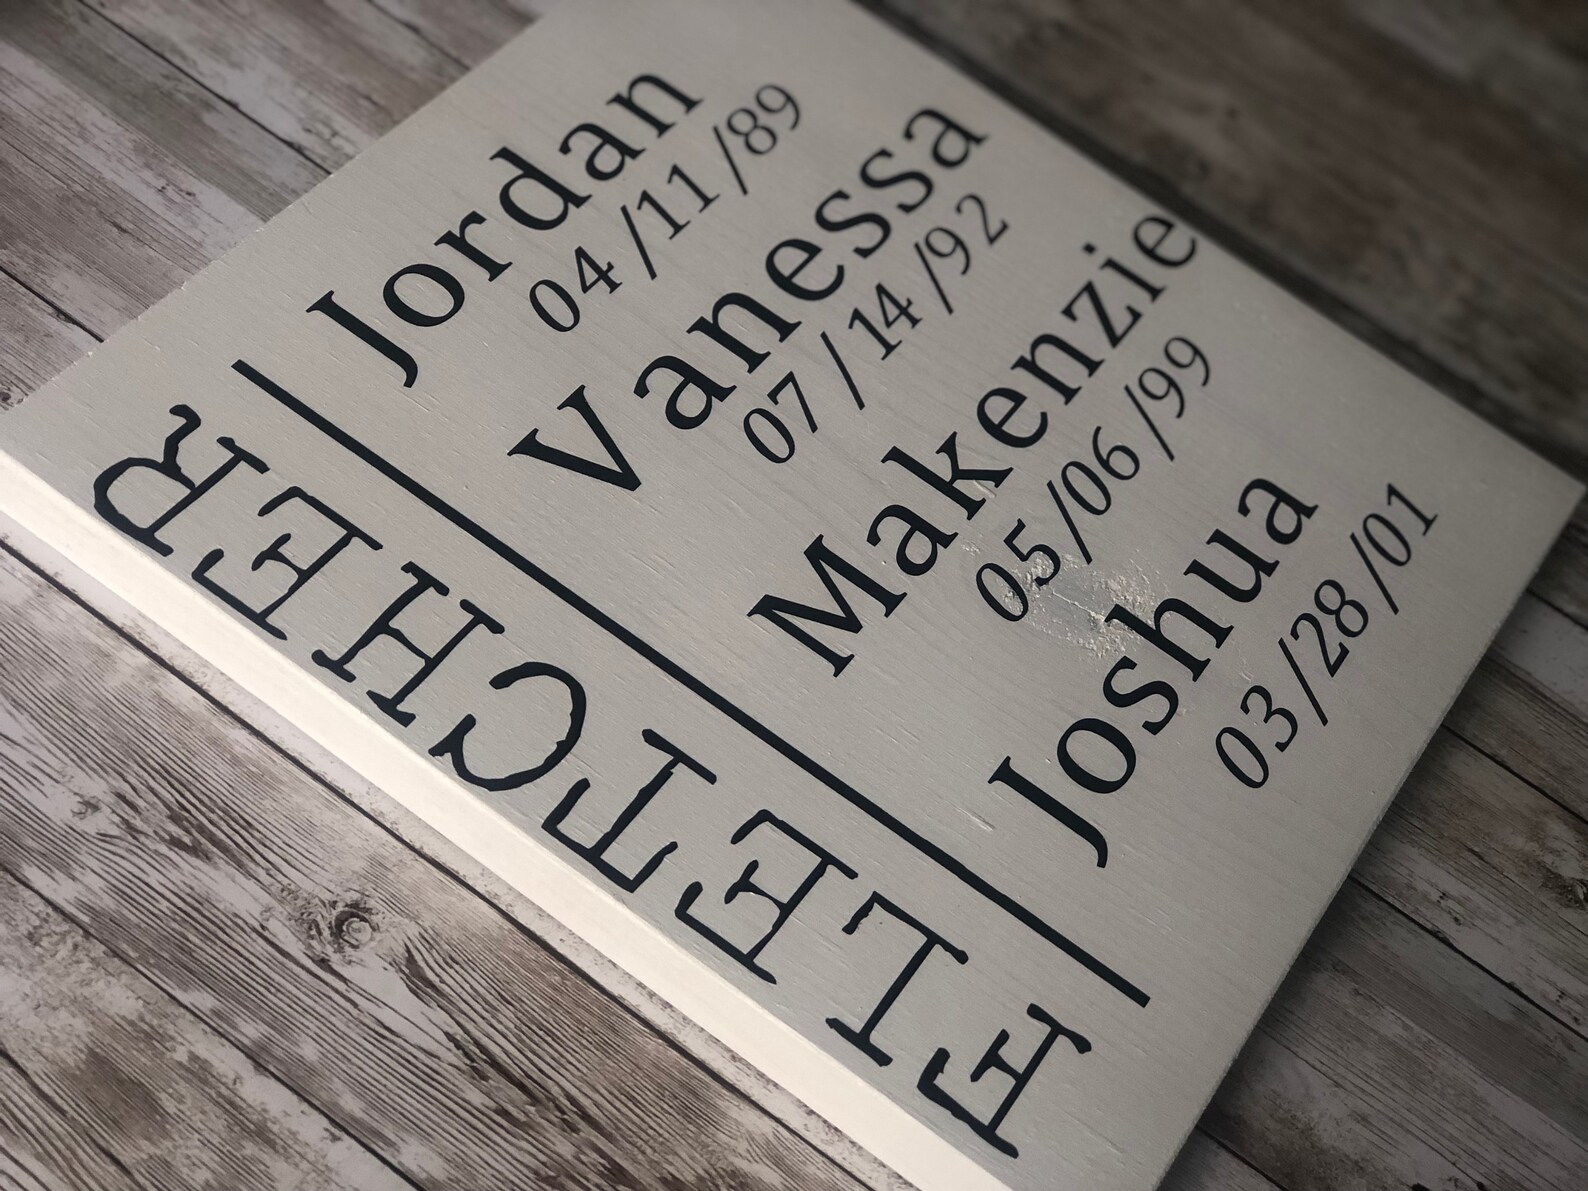 FLETCHER
Jordan
04/11/89
Vanessa
07/14/92
Makenzie
05/06/99
Joshua
03/28/01